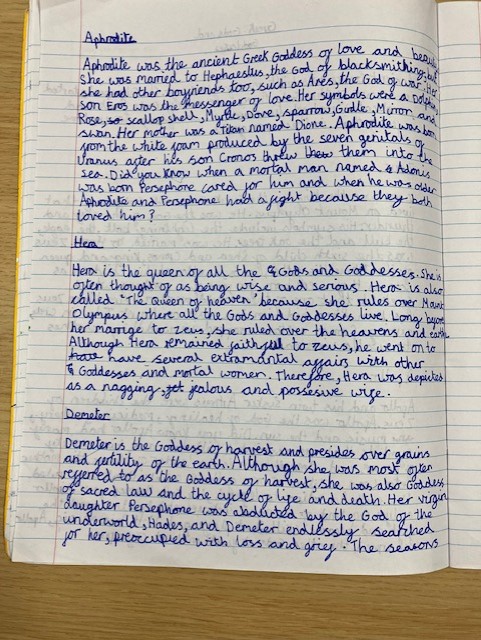 Aphrodite
Aphrodite was the ancient Greek Goddess of love and beauty
She was married to Hephaestus, the God of blacksmithing, but
she had other boyfriends too, such as Ares, the God of war. Her
son Eros was the messenger of love. Her symbols were a Dolphin,
Rose, scallop shell, Myrtle, Dove, sparrow, Girdle, Mirror and
swan. Her mother was a Titan named Dione. Aphrodite was born
from the white foam produced by the seven genitals of
Uranus after his son Cronos threw them into the
sea. Did you know when a mortal man named Adonis
was born Persephone cared for him and when he was older
Aphrodite and Persephone had a fight because they both
loved him?
Hera
Hera is the queen of all the Gods and Goddesses. She is
often thought of as being wise and serious. Hera is also
called 'The Queen of heaven' because she rules over Mount
Olympus where all the Gods and Goddesses live. Long before
her marrige to Zeus, she ruled over the heavens and earth
Although Hera remained faithfull to Zeus, he went on to
have several extramarital affairs with other
Goddesses and mortal women. Therefore, Hera was depicted
as a nagging, yet jealous and possesive wife.
Demeter
Demeter is the Goddess of harvest and presides over grains
and fertility of the earth. Although she was most often
referred to as the Goddess of harvest, she was also Goddess
of sacred law and the cycle of life and death. Her virgin
daughter Persephone was abducted by the God of the
underworld, Hades, and Demeter endlessly searched
for her, preoccupied with loss and grief. The seasons